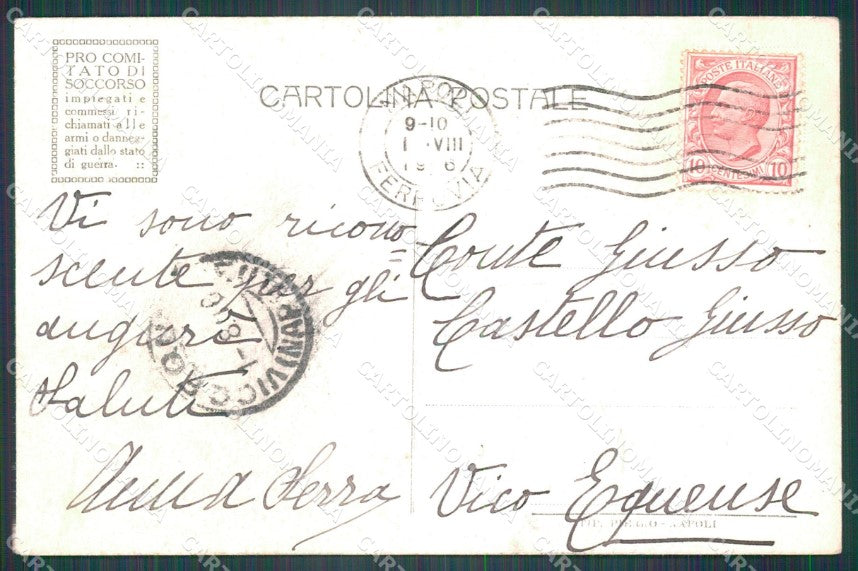 PRO COMI-
TATO DI
SOCCORSO
impiegati e
commessi ri-
chiamati alle
armi o danneg-
giati dallo stato
di guerra. ::
CARTOLINA POSTALE
9-10
VIII
FERROVIA
POSTE ITALIANE
10 CENTESIMI 10
Vi sono ricono=
scente per gli
auguri
Saluti
Anna Serra
VICO EQU (NAPOLI)
Conte Giusso
Castello Giusso
Vico Equense
TIP. - NAPOLI
CARTOLINOMANIA